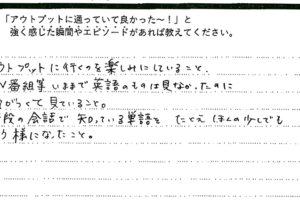 「アウトプットに通っていて良かった～！」と
強く感じた瞬間やエピソードがあれば教えてください。
トプットに行くのを楽しみにしていること。
番組等いままで英語のものは見なかったのに
がって見ていること。
段の会話で知っている単語を たとえ ほんの少しでも
様になったこと。